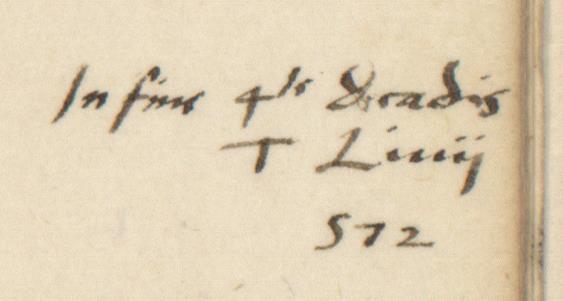 In fine 4te decadis
T Liuij
572